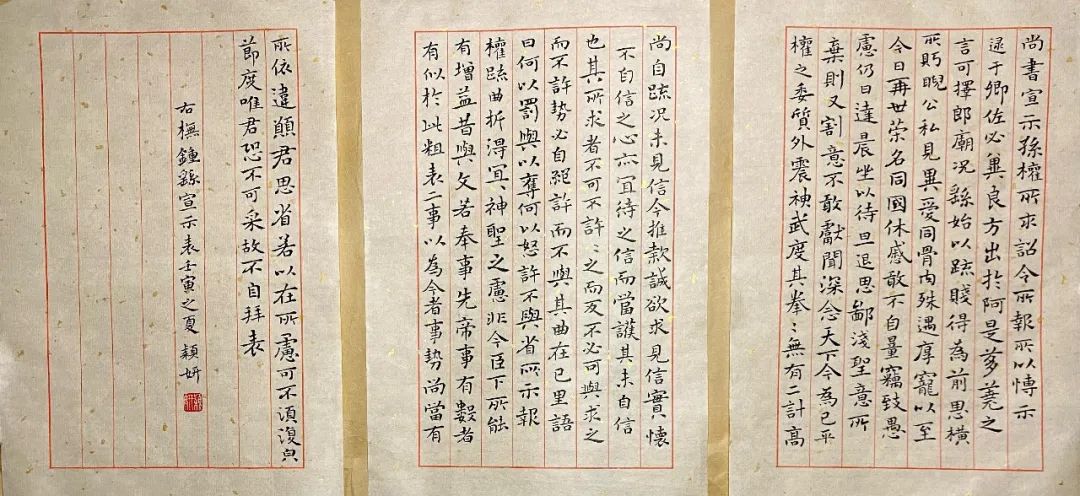 尚書宣示孫權所求詔令所報所以愽示
逮于卿佐必冀良方出於阿是芻蕘之
言可擇郎廟況繇始以疏賤得為前思橫
所眄睨公私見異愛同骨肉殊遇厚寵以至
今日再世榮名同國休慼敢不自量竊致愚
慮仍日達晨坐以待旦退思鄙淺聖意所
棄則又割意不敢獻聞深念天下今為已平
權之委質外震神武度其拳〻無有二計高
尚自疏況未見信今推款誠欲求見信實懷
不自信之心亦冝待之信而當護其未自信
也其所求者不可不許〻之而反不必可與求之
而不許勢必自絕許而不與其曲在己里語
曰何以罰與以奪何以怒許不與省所示報
權疏曲折得冝神聖之慮非今臣下所能
有增益昔與文若奉事先帝事有數者
有似於此粗表二事以為今者事勢尚當有
所依違願君思省若以在所慮可不須復貞
節度唯君恐不可采故不自拜表
右橅鍾繇宣示表壬寅之夏 穎妍